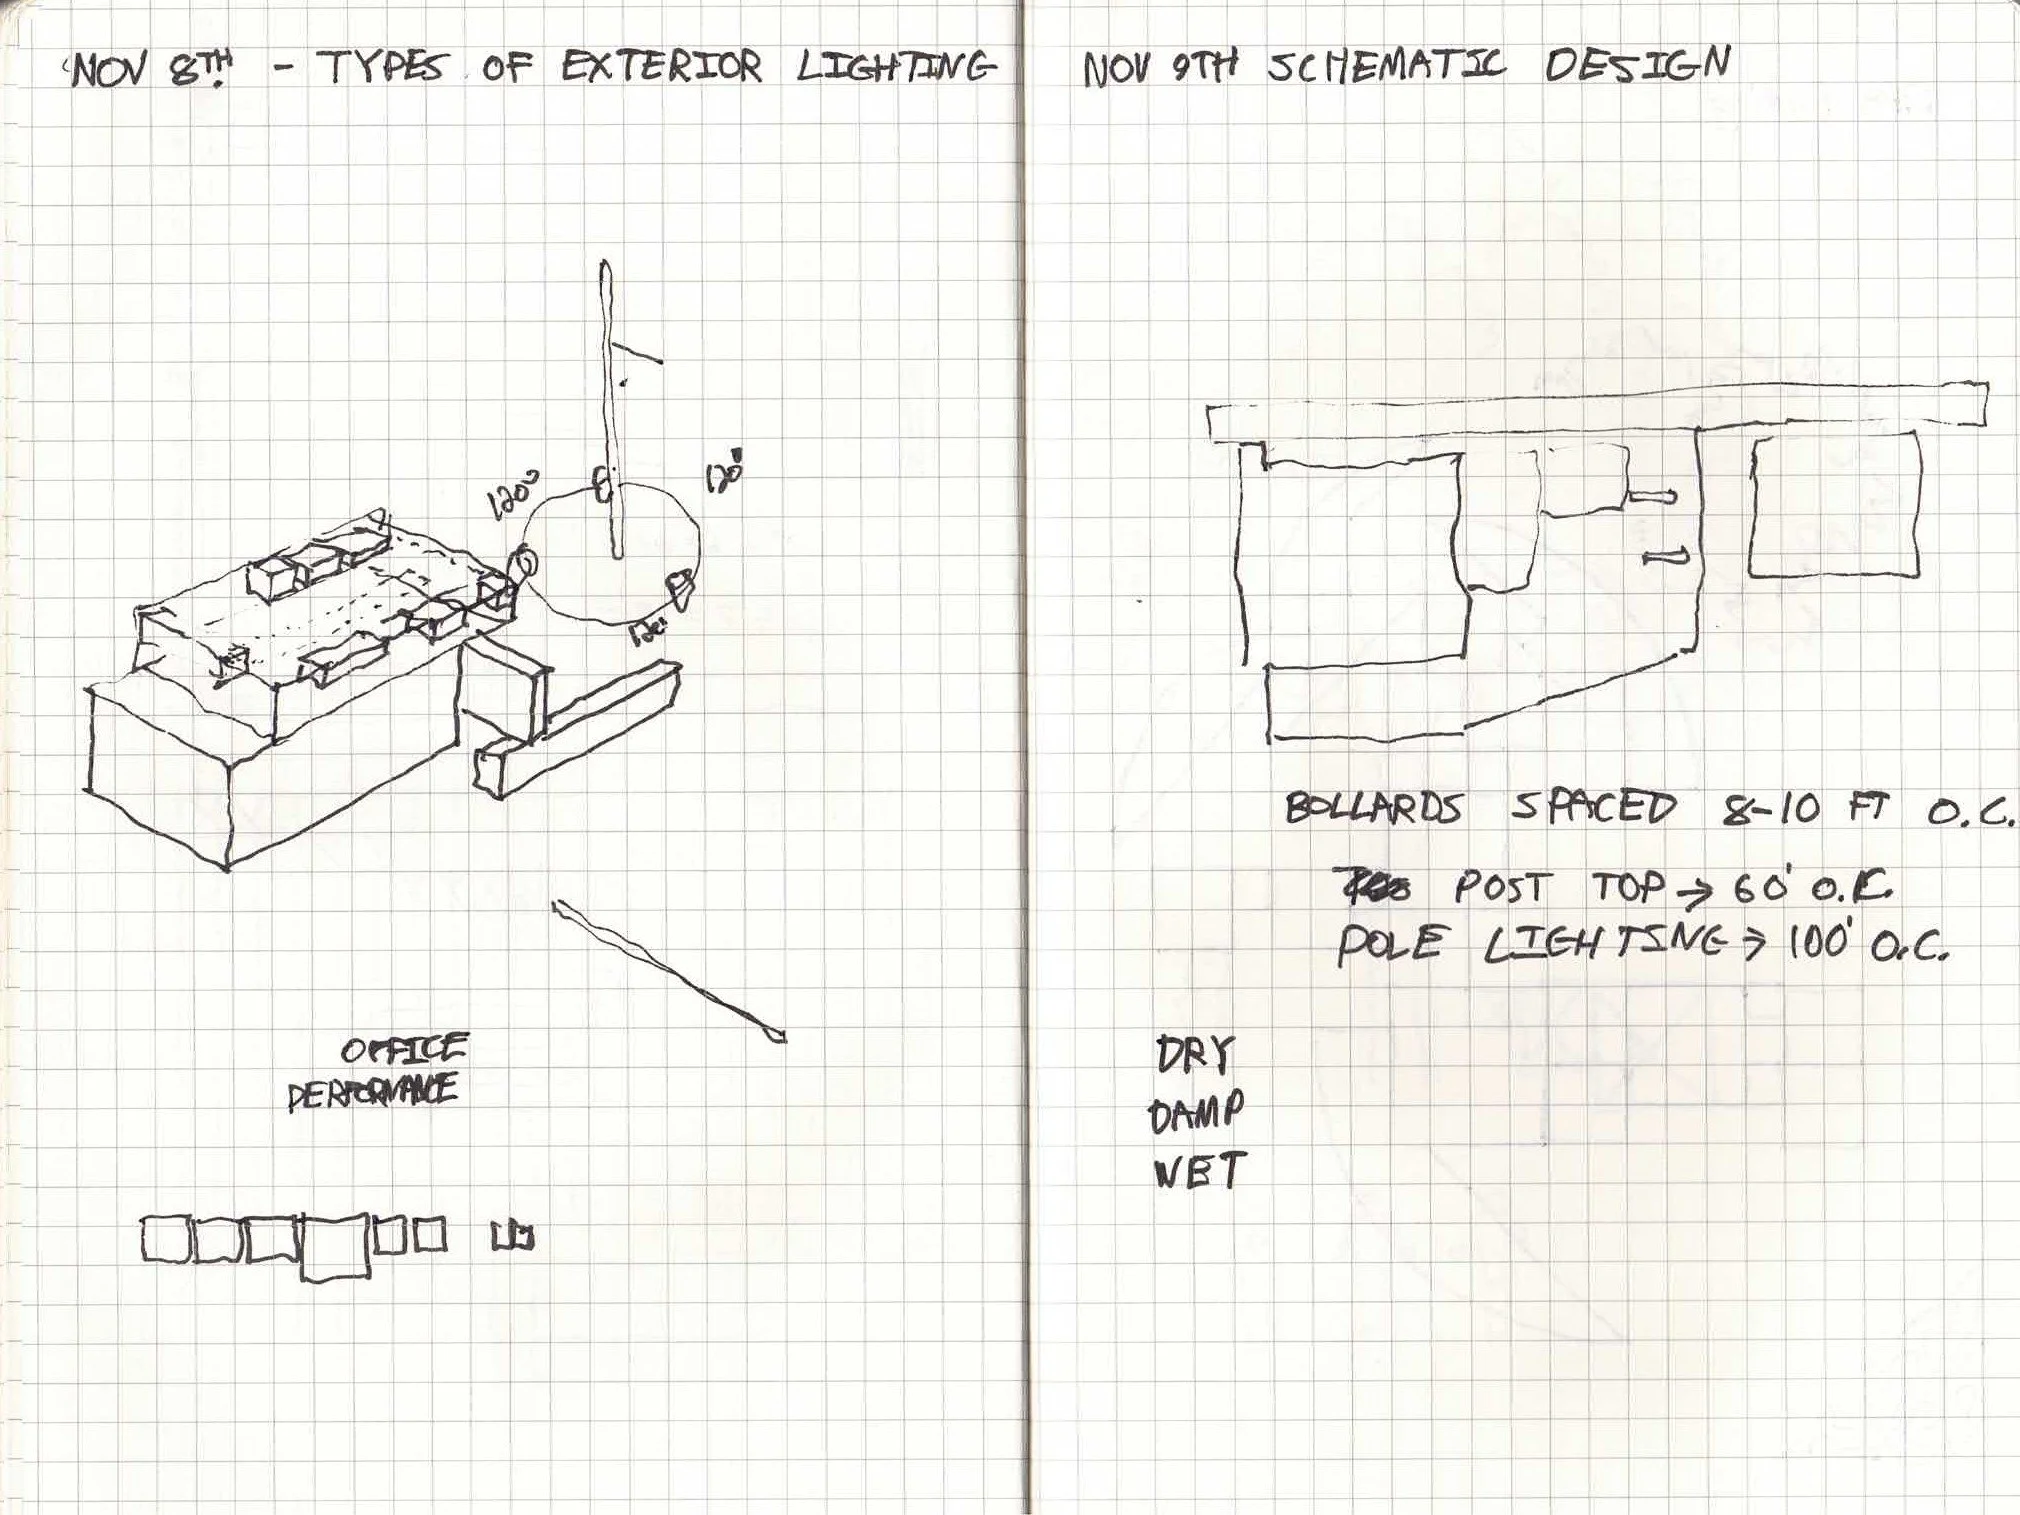 NOV 8TH. - TYPES OF EXTERIOR LIGHTING
120°
120°
120°
OFFICE
PERFORMANCE
NOV 9TH SCHEMATIC DESIGN
BOLLARDS SPACED 8-10 FT O.C.
POST TOP → 60' O.C.
POLE LIGHTING → 100' O.C.
DRY
DAMP
WET